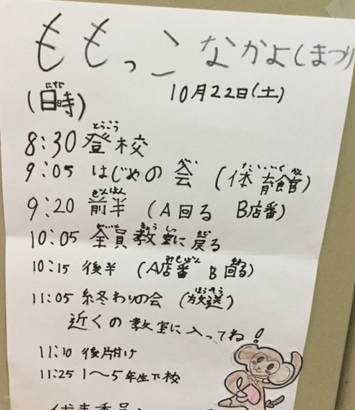 ももっこ なかよしまつり
(日時) 10月22日(土)
8:30 登校
9:05 はじめの会 (体育館)
9:20 前半 (A回る B店番)
10:05 全員教室に戻る
10:15 後半 (A店番 B回る)
11:05 終わりの会 (放送)
近くの教室に入ってね!
11:10 後片付け
11:25 1〜5年生下校